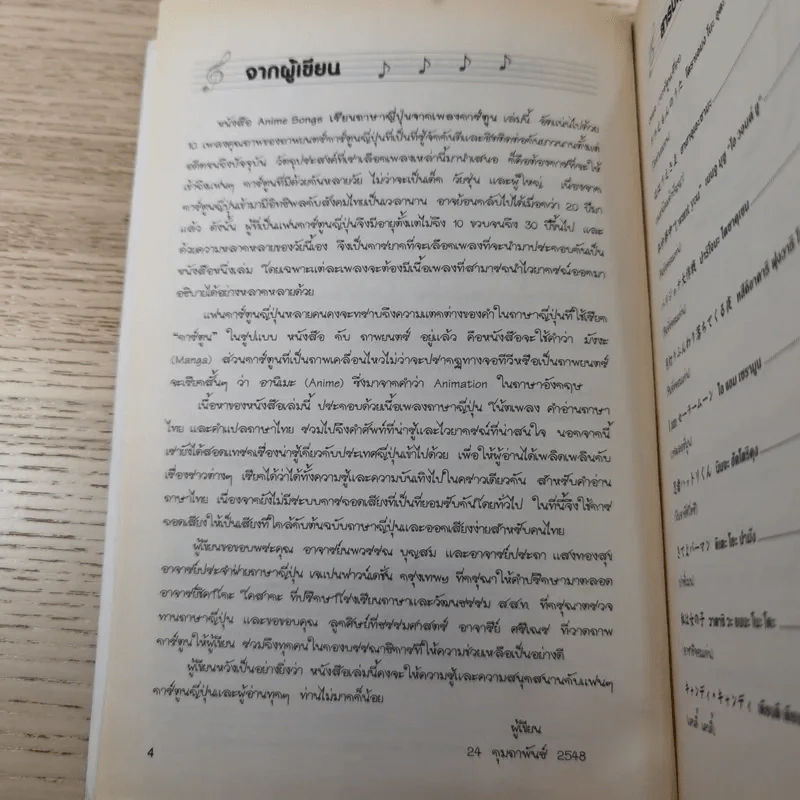 จากผู้เขียน
หนังสือ Anime Songs เรียนภาษาญี่ปุ่นจากเพลงการ์ตูน เล่มนี้ อัดแน่นไปด้วย
10 เพลงคุณภาพของภาพยนตร์การ์ตูนญี่ปุ่นที่เป็นที่รู้จักกันดีและฮิตติดต่อกันยาวนานตั้งแต่
อดีตจนถึงปัจจุบัน วัตถุประสงค์ที่เราเลือกเพลงเหล่านี้มานำเสนอ ก็คือต้องการที่จะให้
เข้าถึงแฟนๆ การ์ตูนที่มีด้วยกันหลายวัย ไม่ว่าจะเป็นเด็ก วัยรุ่น และผู้ใหญ่ เนื่องจาก
การ์ตูนญี่ปุ่นเข้ามามีอิทธิพลกับสังคมไทยเป็นเวลานาน อาจย้อนกลับไปได้เมื่อกว่า 20 ปีมา
แล้ว ดังนั้น ผู้ที่เป็นแฟนการ์ตูนญี่ปุ่นจึงมีอายุตั้งแต่ไม่ถึง 10 ขวบจนถึง 30 ปีขึ้นไป และ
ด้วยความหลากหลายของวัยนี้เอง จึงเป็นการยากที่จะเลือกเพลงที่จะนำมาประกอบกันเป็น
หนังสือหนึ่งเล่ม โดยเฉพาะแต่ละเพลงจะต้องมีเนื้อเพลงที่สามารถนำไวยากรณ์ออกมา
อธิบายได้อย่างหลากหลายด้วย
แฟนการ์ตูนญี่ปุ่นหลายคนคงจะทราบถึงความแตกต่างของคำในภาษาญี่ปุ่นที่ใช้เรียก
"การ์ตูน" ในรูปแบบ หนังสือ กับ ภาพยนตร์ อยู่แล้ว คือหนังสือจะใช้คำว่า มังงะ
(Manga) ส่วนการ์ตูนที่เป็นภาพเคลื่อนไหวไม่ว่าจะปรากฏทางจอทีวีหรือเป็นภาพยนตร์
จะเรียกสั้นๆ ว่า อานิเมะ (Anime) ซึ่งมาจากคำว่า Animation ในภาษาอังกฤษ
เนื้อหาของหนังสือเล่มนี้ ประกอบด้วยเนื้อเพลงภาษาญี่ปุ่น โน้ตเพลง คำอ่านภาษา
ไทย และคำแปลภาษาไทย รวมไปถึงคำศัพท์ที่น่ารู้และไวยากรณ์ที่น่าสนใจ นอกจากนี้
เรายังได้สอดแทรกเรื่องน่ารู้เกี่ยวกับประเทศญี่ปุ่นเข้าไปด้วย เพื่อให้ผู้อ่านได้เพลิดเพลินกับ
เรื่องราวต่างๆ เรียกได้ว่าได้ทั้งความรู้และความบันเทิงไปในคราวเดียวกัน สำหรับคำอ่าน
ภาษาไทย เนื่องจากยังไม่มีระบบการถอดเสียงที่เป็นที่ยอมรับกันโดยทั่วไป ในที่นี้จึงใช้การ
ถอดเสียงให้เป็นเสียงที่ใกล้กับต้นฉบับภาษาญี่ปุ่นและออกเสียงง่ายสำหรับคนไทย
ผู้เขียนขอขอบพระคุณ อาจารย์นพวรรณ บุญสม และอาจารย์ประภา แสงทองสุข
อาจารย์ประจำฝ่ายภาษาญี่ปุ่น เจแปนฟาวน์เดชั่น กรุงเทพฯ ที่กรุณาให้คำปรึกษามาตลอด
อาจารย์ฮิคาโกะ โคสากะ ที่ปรึกษาโรงเรียนภาษาและวัฒนธรรม ส.ส.ท. ที่กรุณาตรวจ
ทานภาษาญี่ปุ่น และขอขอบคุณ ลูกศิษย์ที่ธรรมศาสตร์ อาจารีย์ ศรีเณร ที่วาดภาพ
การ์ตูนให้ผู้เขียน รวมถึงทุกคนในกองบรรณาธิการที่ให้ความช่วยเหลือเป็นอย่างดี
ผู้เขียนหวังเป็นอย่างยิ่งว่า หนังสือเล่มนี้คงจะให้ความรู้และความสนุกสนานกับแฟนๆ
การ์ตูนญี่ปุ่นและผู้อ่านทุกๆ ท่านไม่มากก็น้อย
ผู้เขียน
24 กุมภาพันธ์ 2548
4